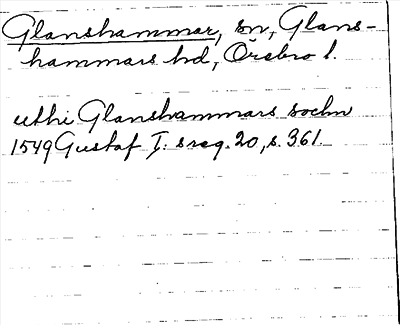 Glanshammar, sn, Glans-
hammars hd, Örebro l.
uthi Glanshammars sochn
1549 Gustaf I: s reg. 20, s. 361.